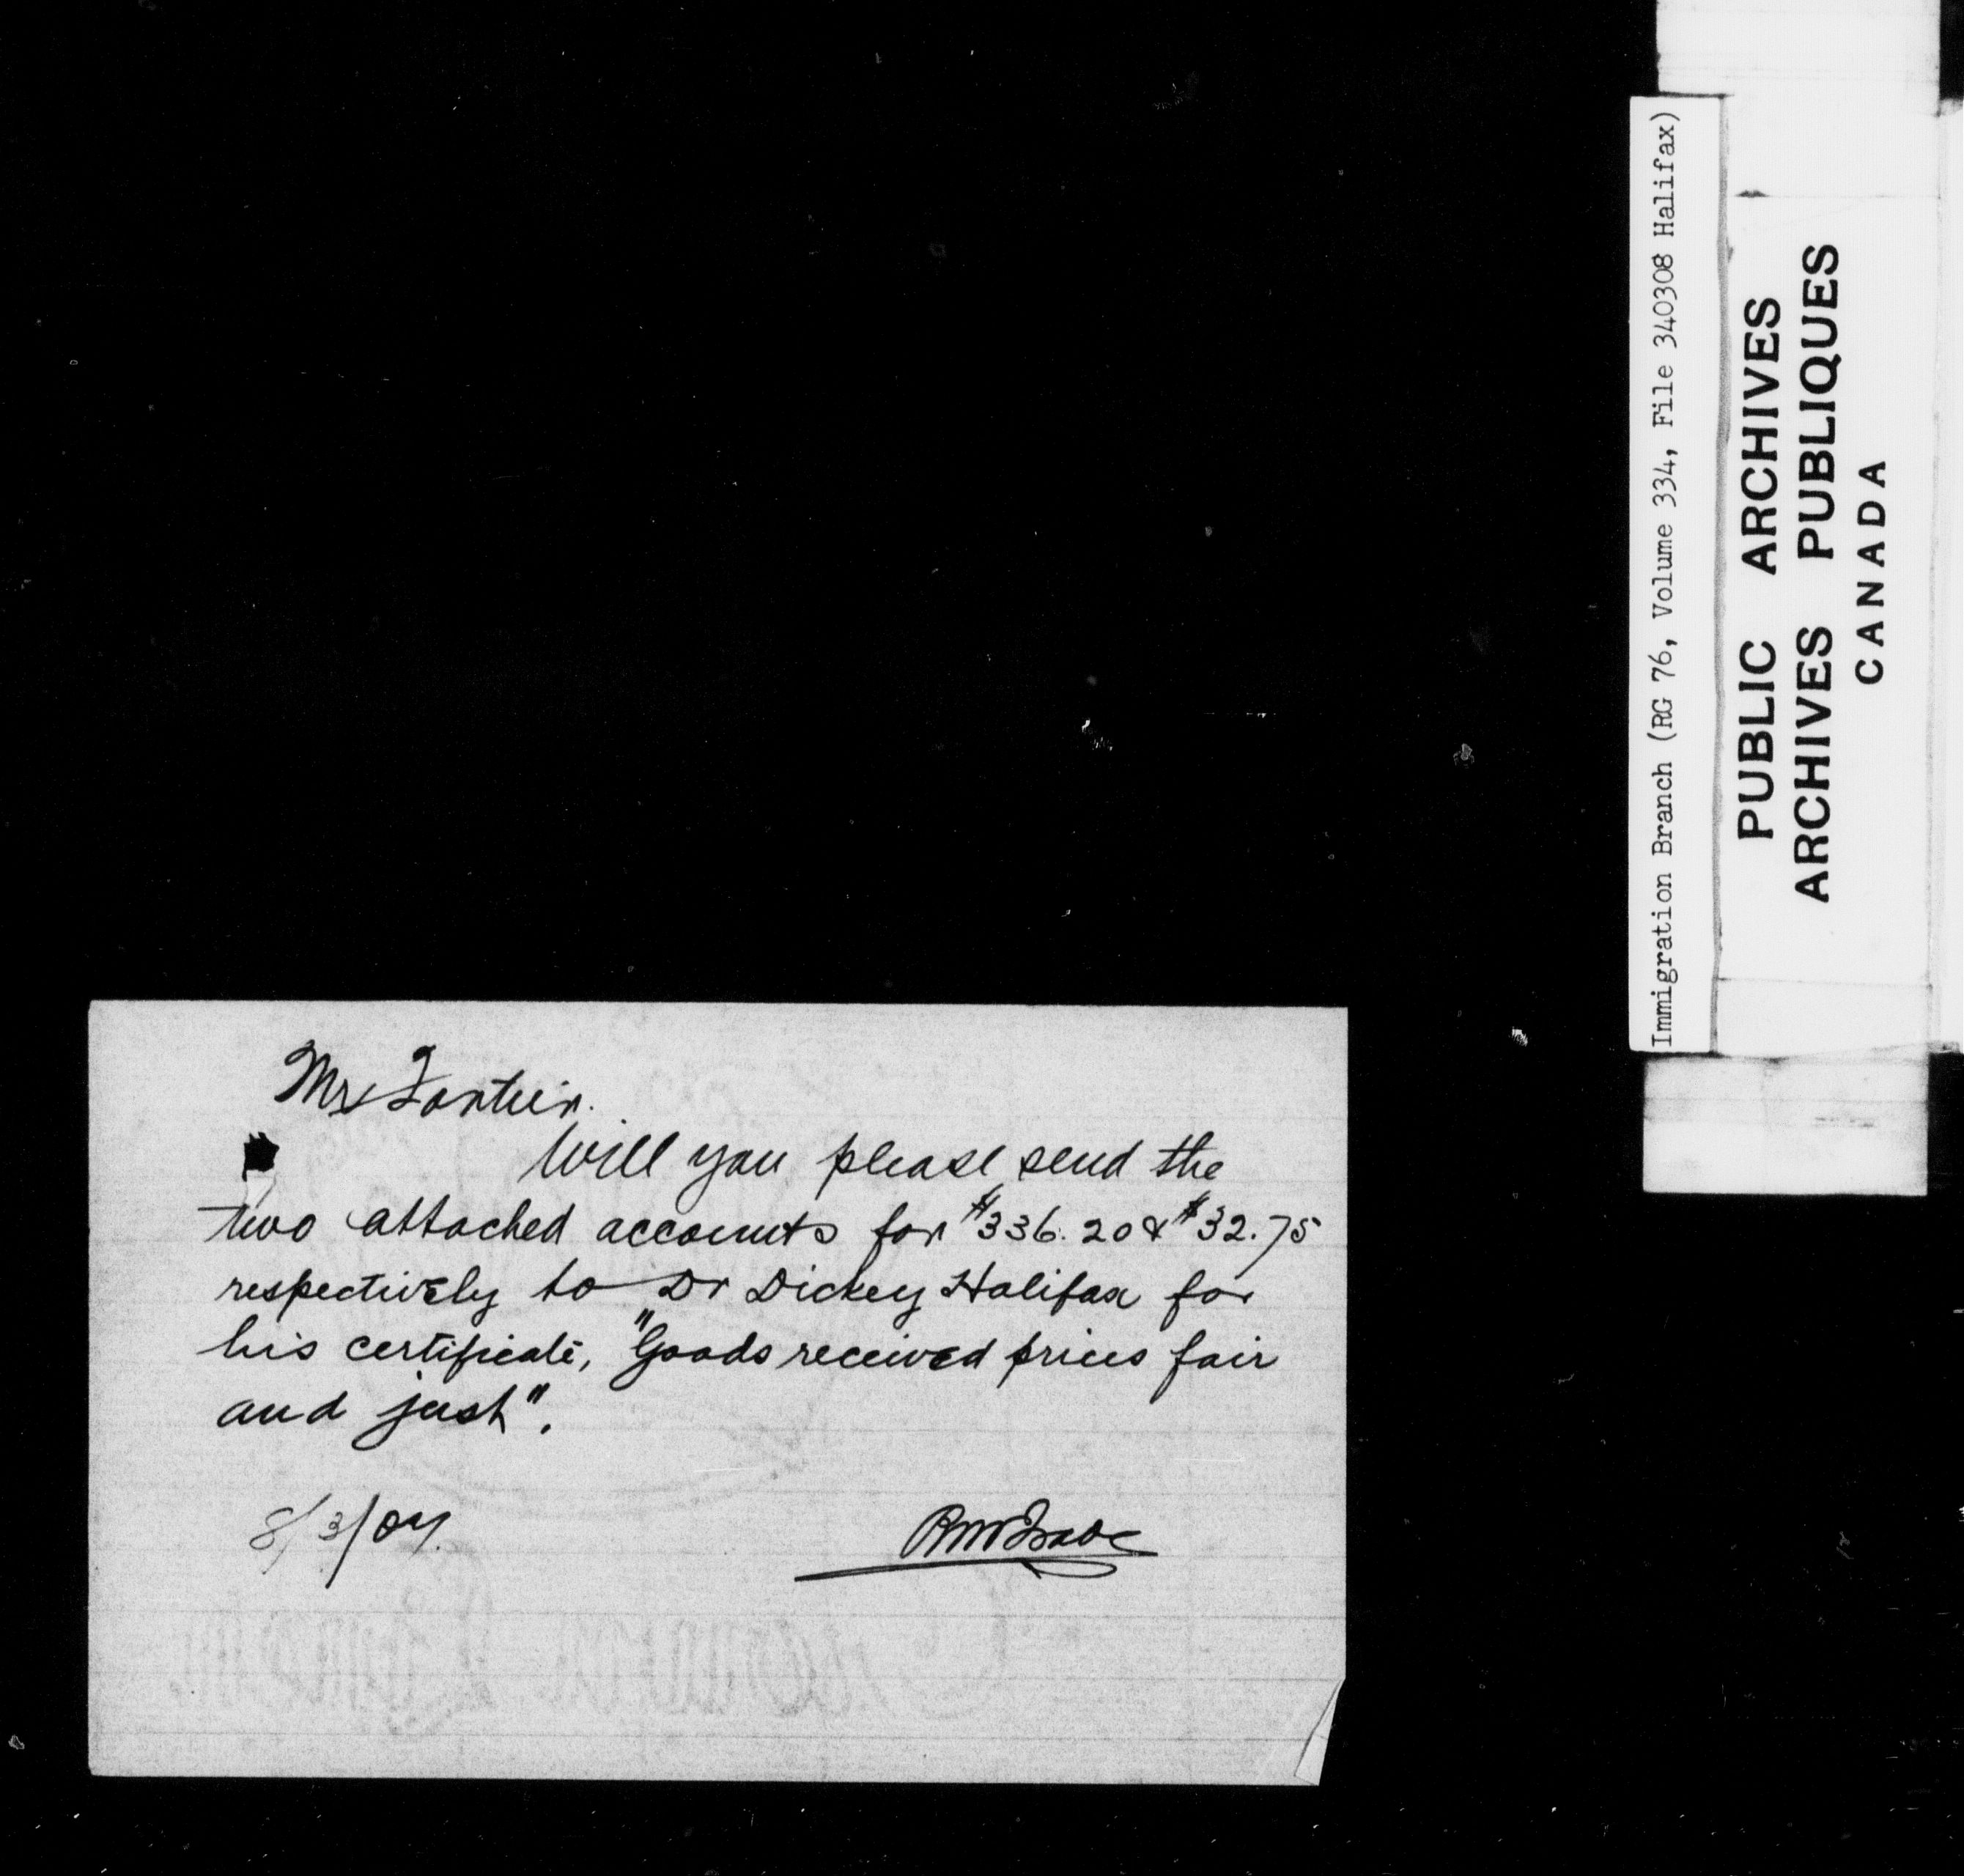 Mr Fortier.
Will you please send the
two attached accounts for $336.20 & $32.75
respectively to Dr Dickey Halifax for
his certificate, "Goods received prices fair
and just".
8/3/07.
Immigration Branch (RG 76, Volume 334, File 340308 Halifax)
PUBLIC ARCHIVES
ARCHIVES PUBLIQUES
CANADA